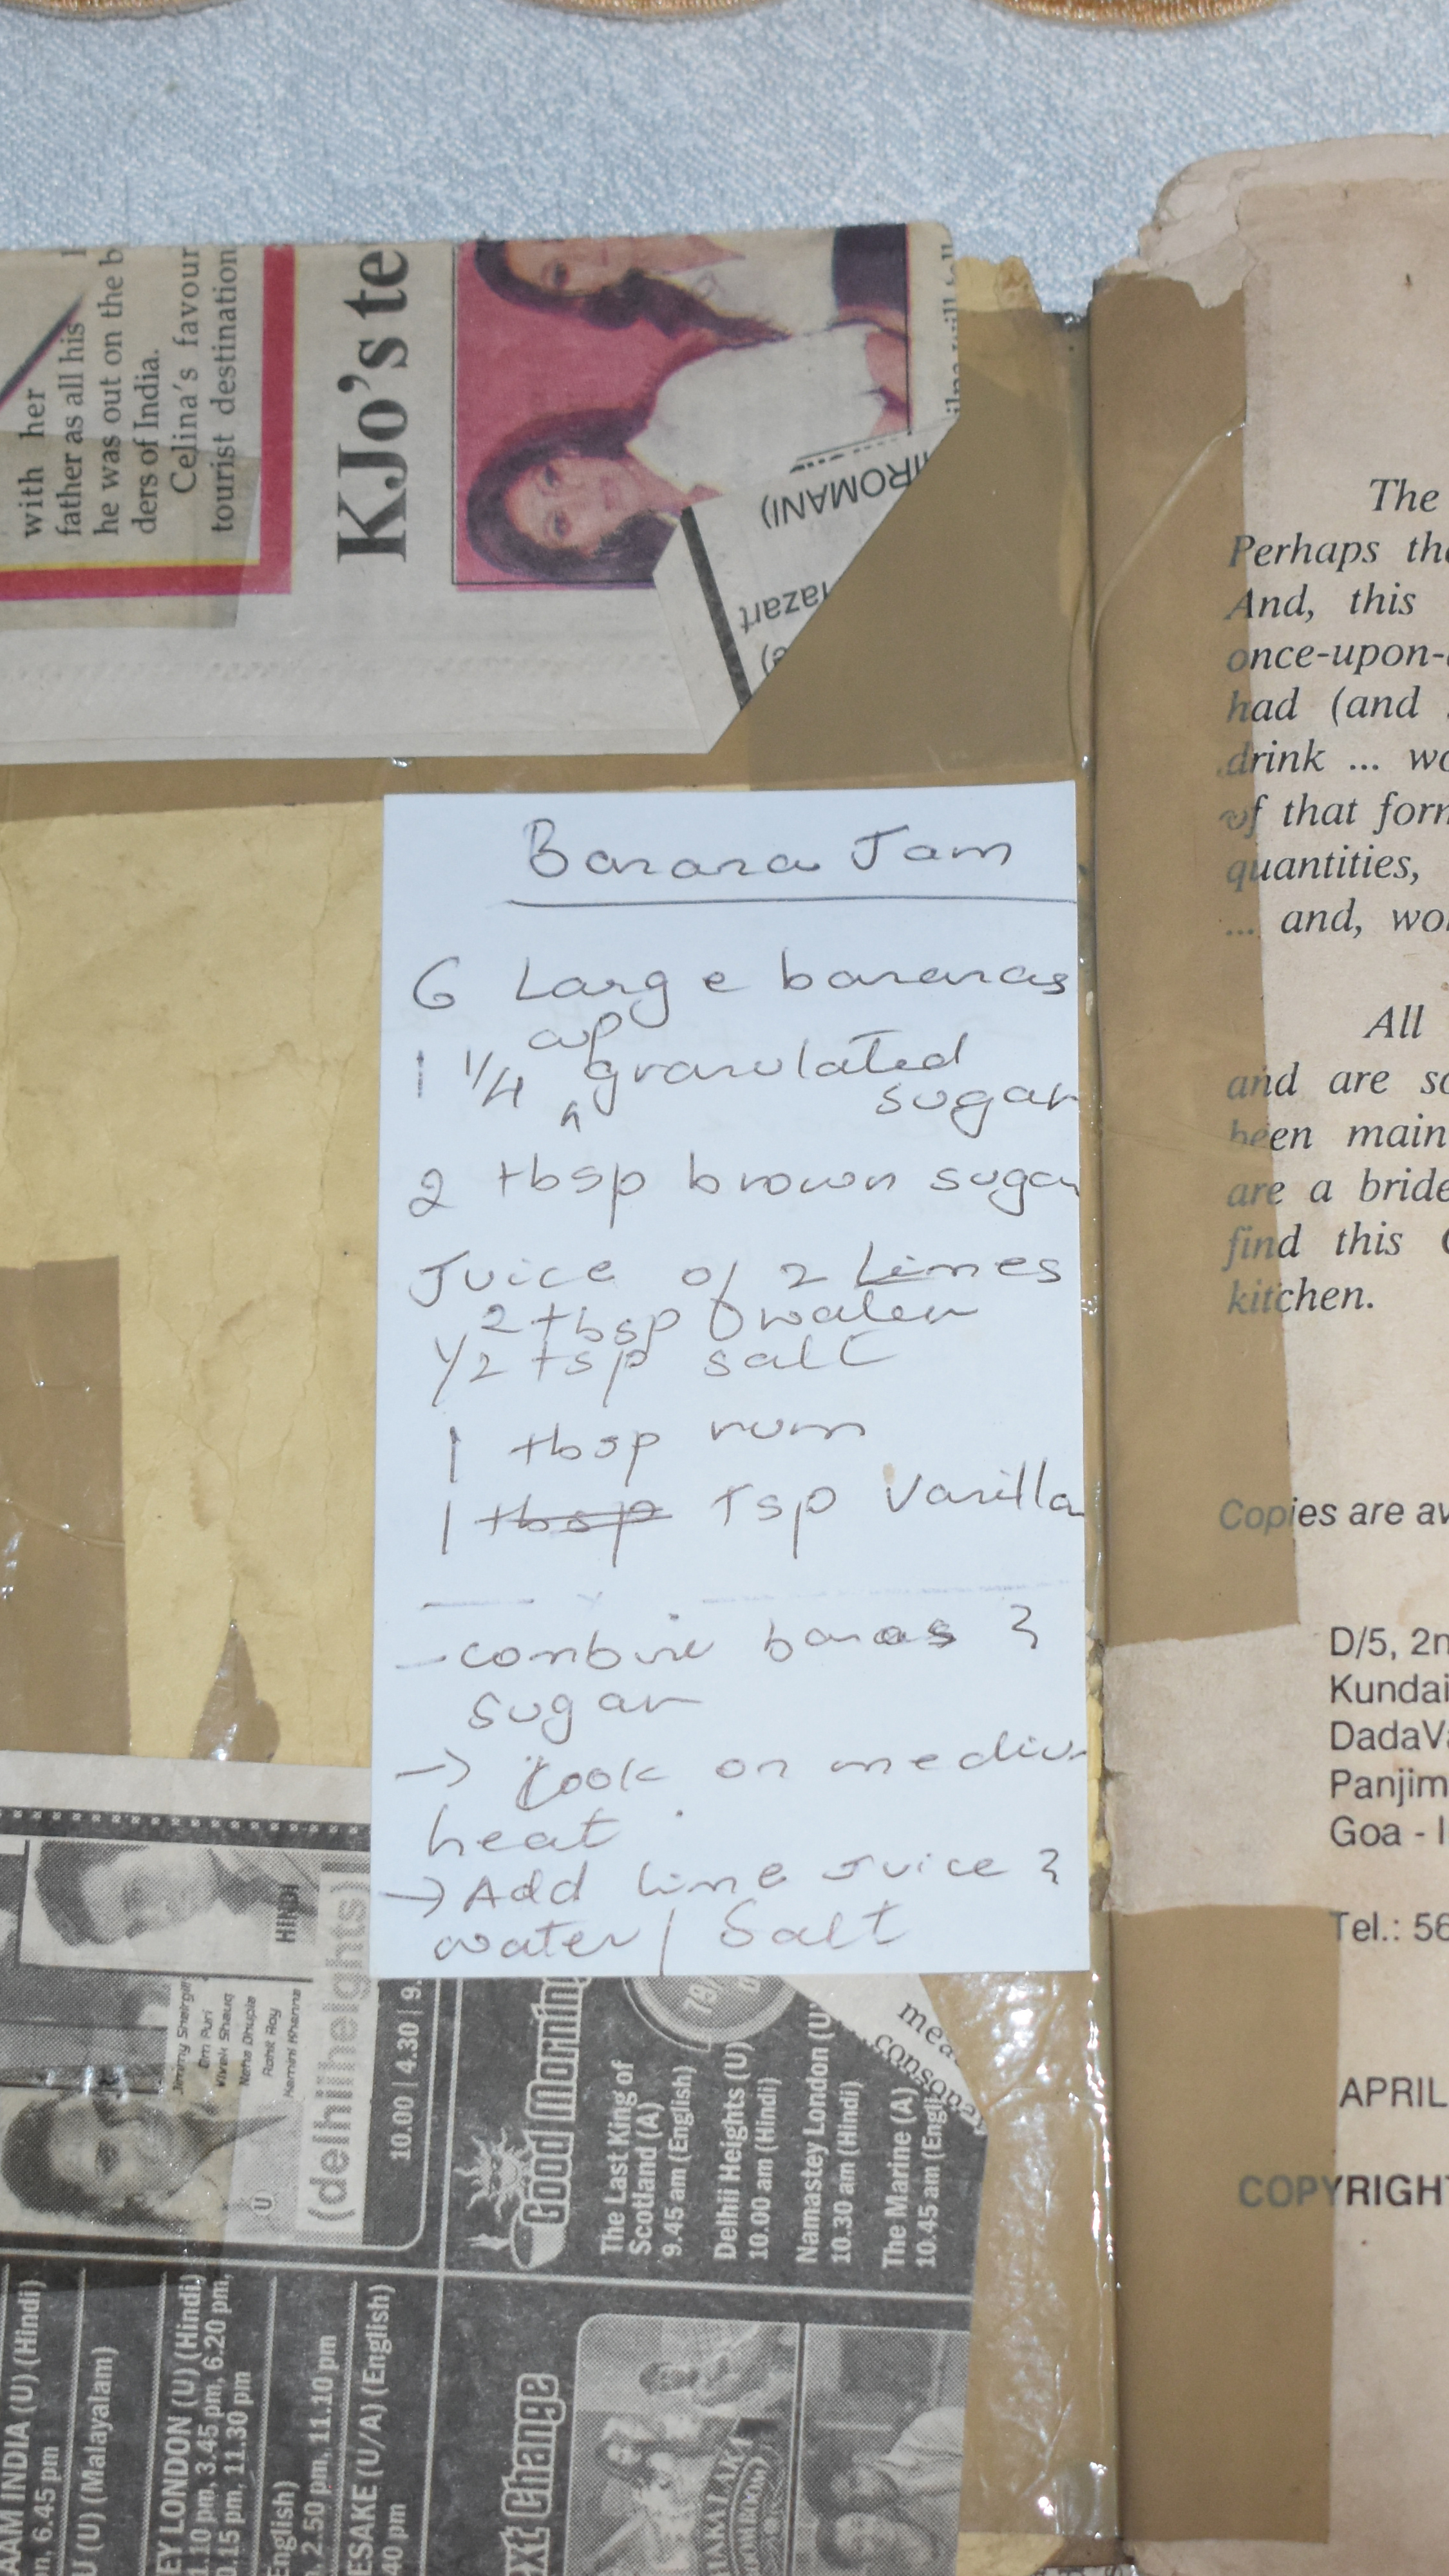 with her
father as all his
he was out on the b
ders of India.
Celina's favour
tourist destination
KJo's te
IIROMANI)
lazart
Banana Jam
6 Large bananas
cup
1 1/4 ^ granulated
sugar
2 tbsp brown sugar
Juice of 2 Limes
2 tbsp water
1/2 tsp salt
1 tbsp rum
1 tbsp Tsp Vanilla
- combine banas &
sugar
→ Cook on mediu
heat
→ Add lime Juice &
water / Salt
The
Perhaps the
And, this
once-upon-a
had (and
drink ... wo
of that form
quantities,
... and, wor
All
and are so
been main
are a bride
find this
kitchen.
Copies are av
D/5, 2n
Kundai
DadaVa
Panjim
Goa - I
Tel.: 56
APRIL
COPYRIGH
HINDI
Jimmy Sheirgill
Om Puri
Vivek Shauq
Neha Dhupia
Rohit Roy
Kamini Khanna
(delhiiheights)
U
10.00 | 4.30 | 9.
Good Morning
The Last King of
Scotland (A)
9.45 am (English)
Delhii Heights (U)
10.00 am (Hindi)
Namastey London (U)
10.30 am (Hindi)
The Marine (A)
10.45 am (Englis
mea
consona
AAM INDIA (U) (Hindi)
n, 6.45 pm
U (U) (Malayalam)
EY LONDON (U) (Hindi)
1.10 pm, 3.45 pm, 6.20 pm,
0.15 pm, 11.30 pm
English)
, 2.50 pm, 11.10 pm
ESAKE (U/A) (English)
40 pm
ext Change
HAKA LAKA
BOOM BOOM